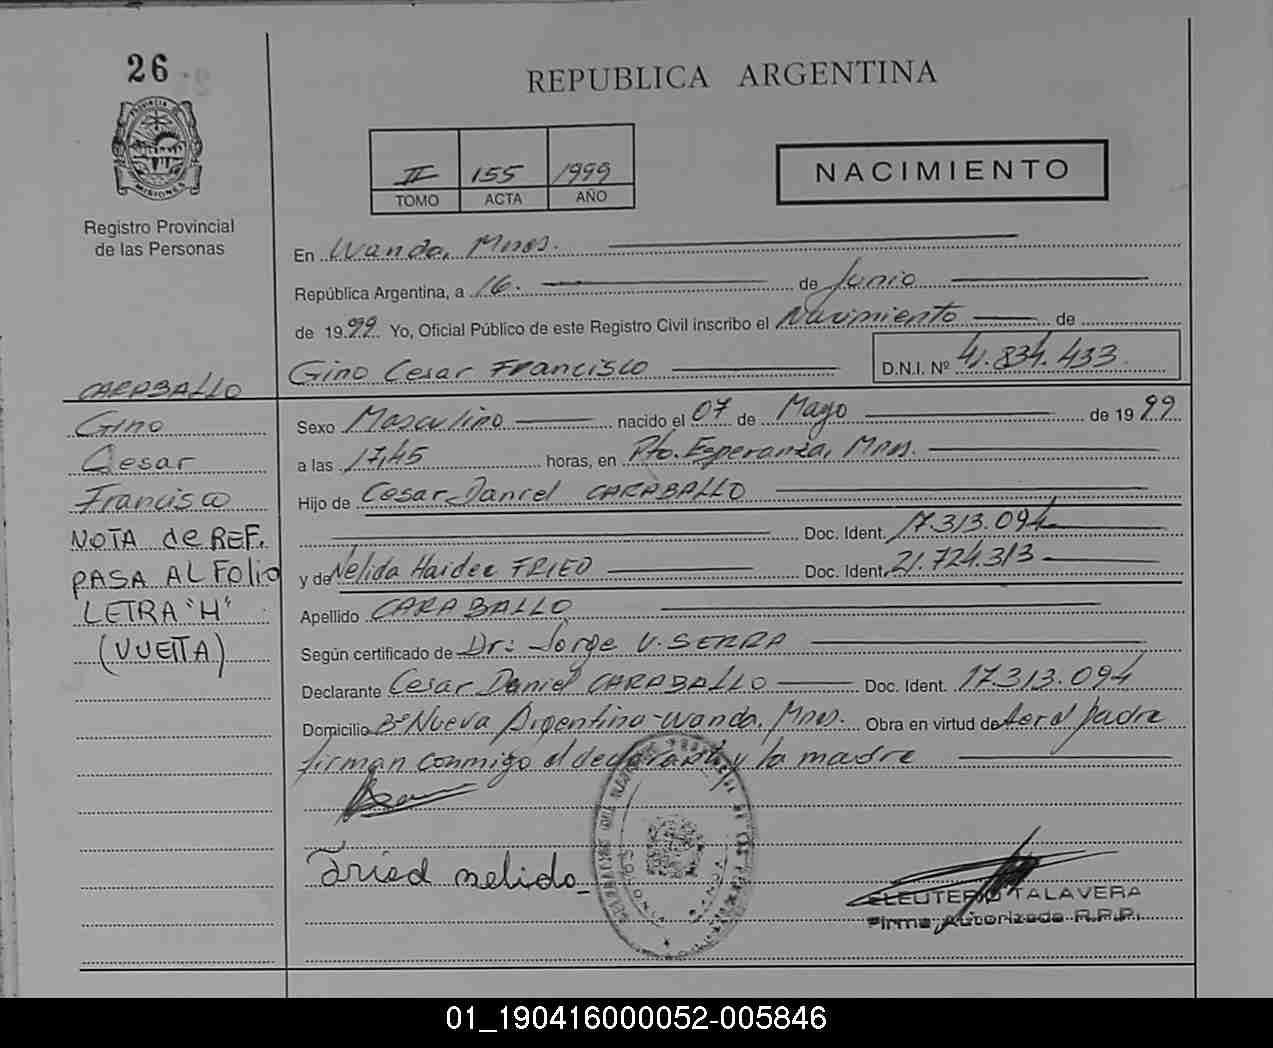 26
PROVINCIA DE
MISIONES
Registro Provincial
de las Personas
REPUBLICA ARGENTINA
II 155 1999
TOMO ACTA AÑO
NACIMIENTO
En Wanda, Mnes.
República Argentina, a 16. de Junio
de 1999. Yo, Oficial Público de este Registro Civil inscribo el Nacimiento de
Gino Cesar Francisco D.N.I. Nº 41.834.433
Sexo Masculino nacido el 07 de Mayo de 1999
a las 17,45 horas, en Pto. Esperanza, Mnes.
Hijo de Cesar Daniel CARABALLO
Doc. Ident. 17.313.094
y de Nelida Haidee FRIED Doc. Ident. 21.724.313
Apellido CARABALLO
Según certificado de Dr: Jorge V. SERRA
Declarante Cesar Daniel CARABALLO Doc. Ident. 17.313.094
Domicilio Bº Nueva Argentina-Wanda, Mnes. Obra en virtud de ser el padre
firman conmigo el declarante y la madre
Fried nelida
ELEUTERIO TALAVERA
Firma Autorizada R.P.P.
CARABALLO
Gino
Cesar
Francisco
NOTA de REF.
PASA AL FOLIO
LETRA "H"
(VUELTA)
01_190416000052-005846